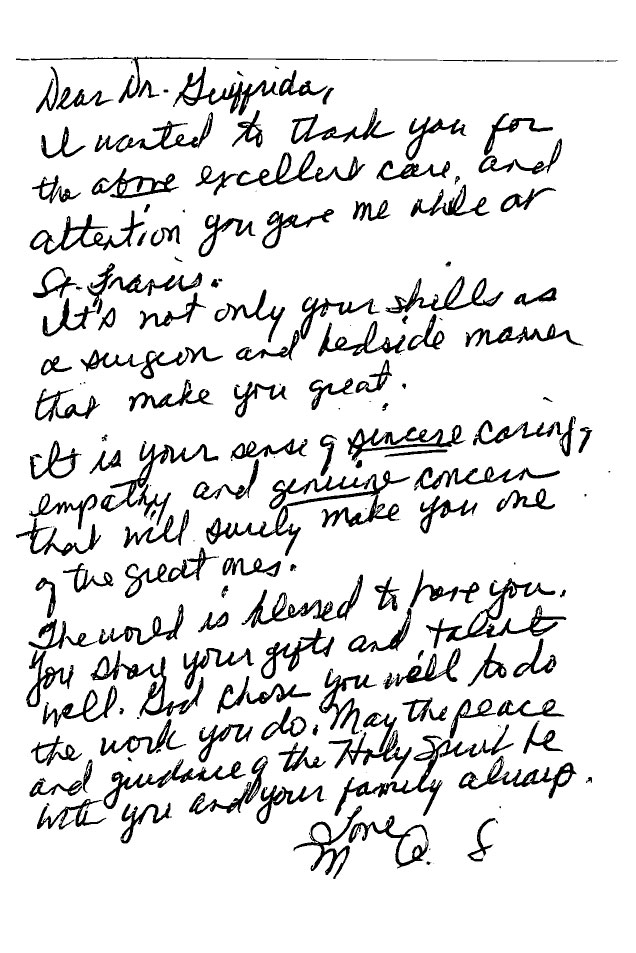 Dear Dr. Guiffrida,
I wanted to thank you for
the above excellent care, and
attention you gave me while at
St. Francis.
It's not only your skills as
a surgeon and bedside manner
that make you great.
It is your sense of sincere caring,
empathy and genuine concern
that will surely make you one
of the great ones.
The world is blessed to have you.
You share your gifts and talents
well. God chose you well to do
the work you do. May the peace
and guidance of the Holy Spirit be
with you and your family always.
Love
M Q. S